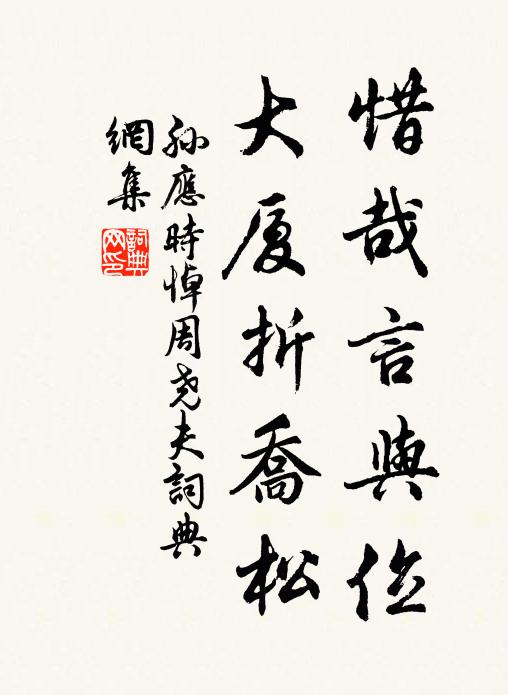 惜哉言與位
大厦折喬松
孫應時悼周尧夫詞典
網集
詞典
网印